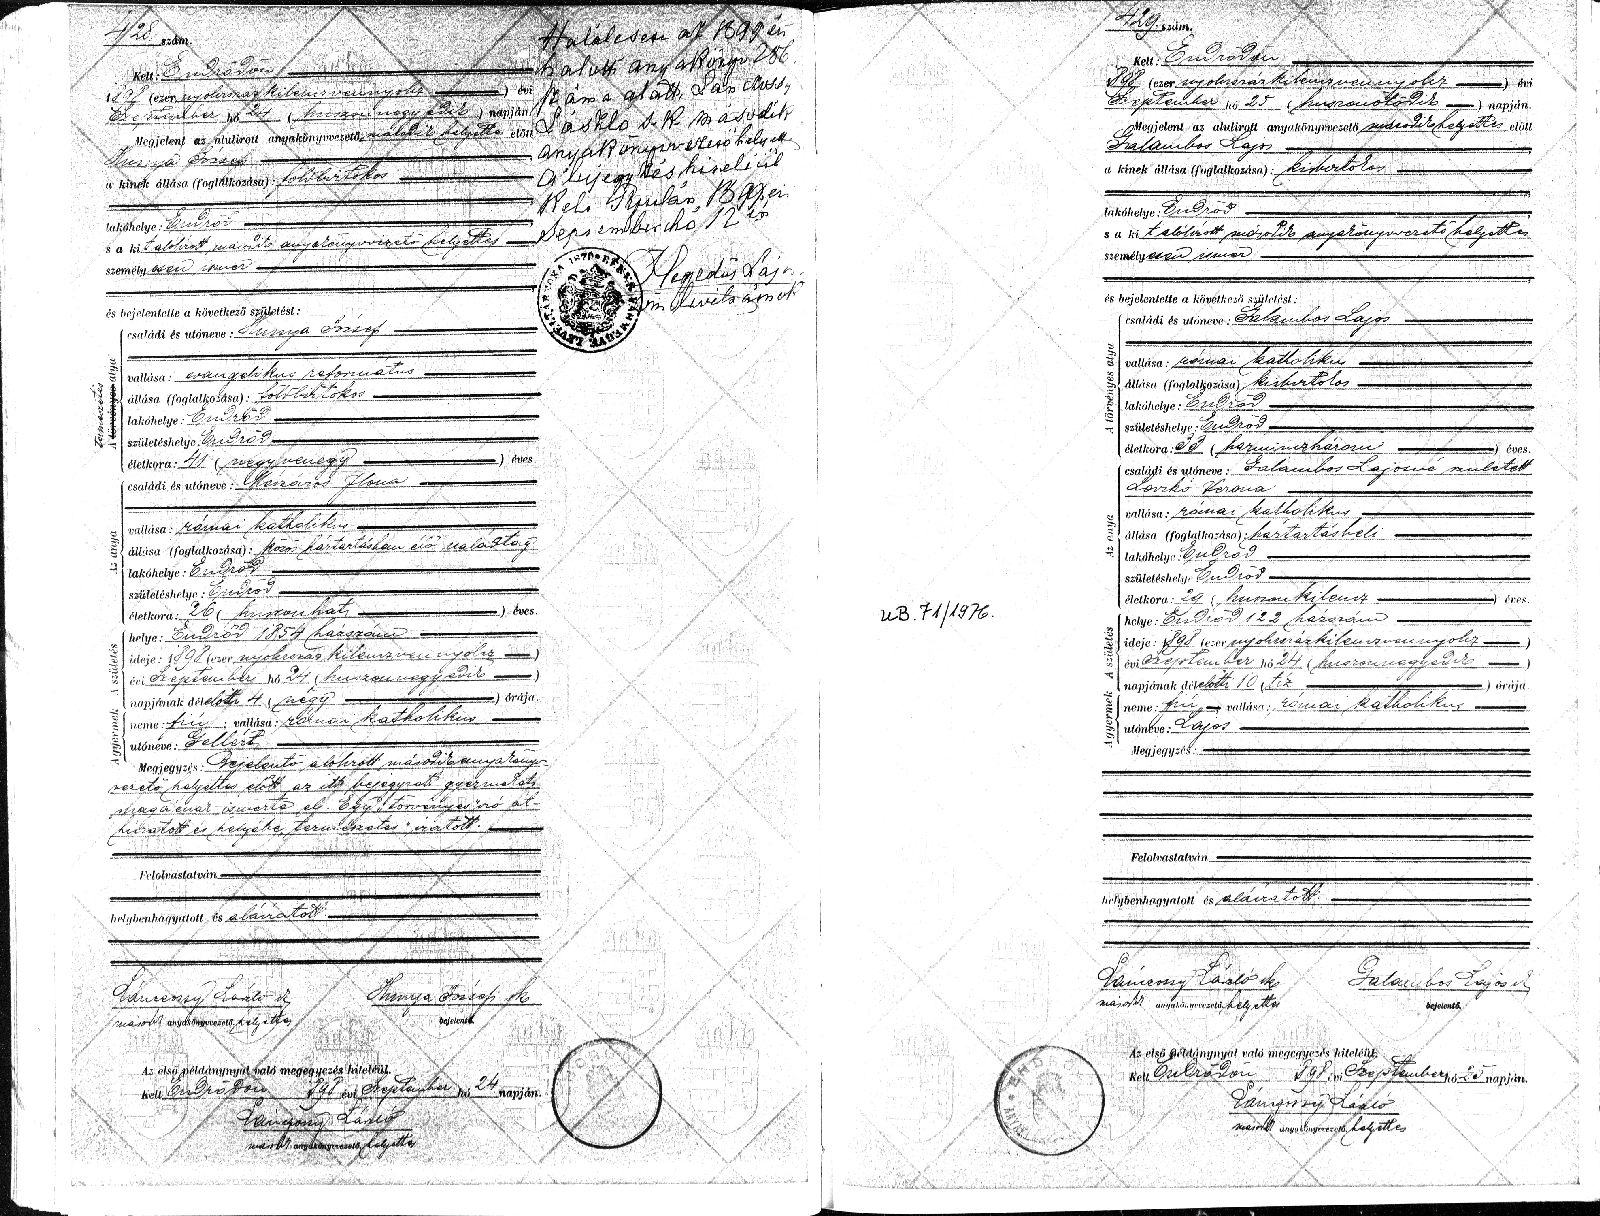 428 szám.
Kelt: Endrődön
1898 (ezer nyolcszáz kilenczvennyolcz) évi
Szeptember hó 24 (huszonnegyedik) napján.
Megjelent az alulirott anyakönyvvezető, második helyettes előtt
Hunya József
a kinek állása (foglalkozása): földbirtokos
lakóhelye: Endrőd
s a kit alólírott második anyakönyvvezető helyettes
személyesen ismer
és bejelentette a következő születést:
Természetes
A törvényes atya
családi és utóneve: Hunya József
vallása: evangélikus református
állása (foglalkozása): földbirtokos
lakóhelye: Endrőd
születéshelye: Endrőd
életkora: 41 (negyvenegy) éves
Az anya
családi és utóneve: Mészáros Ilona
vallása: római katholikus
állása (foglalkozása): közös háztartásban élő
lakóhelye: Endrőd
születéshelye: Endrőd
életkora: 26 (huszonhat) éves.
A gyermek A születés
helye: Endrőd 1854 házszám
ideje: 1898 (ezer nyolcszáz kilenczvennyolcz)
évi Szeptember hó 24 (huszonnegyedik)
napjának délelőtti 4 (négy) órája.
neme: fiú; vallása: római katholikus
utóneve: Gellért
Megjegyzés: Bejelentő alólírott második anyakönyv-
vezető helyettes előtt az itt bejegyzett gyermeket
magáénak ismerte el. Egy "törvényes" szó át-
húzatott és helyébe "természetes" iratott.
Felolvastatván
helybenhagyatott és aláiratott.
Lánczossy László sk
másod. anyakönyvvezető, helyettes
Hunya József sk
bejelentő.
Az első példánynyal való megegyezés hiteléül.
Kelt Endrődön 1898 évi Szeptember hó 24 napján.
Lánczossy László
másod. anyakönyvvezető, helyettes
Halálesete az 1899 évi
halotti anyakönyv 286
száma alatt. Lánczossy
László s.k. második
anyakönyvvezető helyettes
A bejegyzés hiteléül
Kelt Gyulán, 1899 évi
Szeptember hó 12 én
Hegedűs Lajos
429. szám.
Kelt: Endrődön
1898 (ezer nyolcszáz kilenczvennyolcz) évi
Szeptember hó 25 (huszonötödik) napján.
Megjelent az alulirott anyakönyvvezető második helyettes előtt
Galambos Lajos
a kinek állása (foglalkozása): kisbirtokos
lakóhelye: Endrőd
s a kit alólírott második anyakönyvvezető helyettes
személyesen ismer
és bejelentette a következő születést:
A törvényes atya
családi és utóneve: Galambos Lajos
vallása: római katholikus
állása (foglalkozása) kisbirtokos
lakóhelye: Endrőd
születéshelye: Endrőd
életkora: 33 (harminczhárom) éves.
Az anya
családi és utóneve: Galambos Lajosné született
vallása: római katholikus
állása (foglalkozása): háztartásbeli
lakóhelye: Endrőd
születéshelye: Endrőd
életkora: 29 (huszonkilencz) éves.
A gyermek A születés
helye: Endrőd 122 házszám
ideje: 1898 (ezer nyolcszáz kilenczvennyolcz)
évi Szeptember hó 24 (huszonnegyedik)
napjának délelőtti 10 (tíz) órája
neme: fiú, vallása: római katholikus
utóneve: Lajos
Megjegyzés:
Felolvastatván
helybenhagyatott és aláiratott.
Lánczossy László sk
másod. anyakönyvvezető, helyettes
Galambos Lajos sk
bejelentő.
Az első példánynyal való megegyezés hiteléül.
Kelt Endrődön 1898 évi Szeptember hó 25 napján.
Lánczossy László
másod. anyakönyvvezető, helyettes
UB. 71/1976.